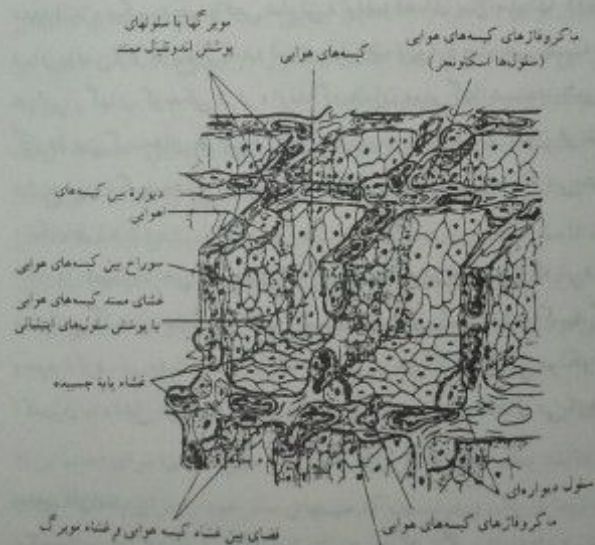 مویرگها با سلولهای
پوشش اندوتلیال ممتد
کیسه‌های هوایی
ماکروفاژهای کیسه‌های هوایی
(سلول‌ها اسکاونجر)
دیوارهٔ بین کیسه‌های
هوایی
سوراخ بین کیسه‌های هوایی
غشای ممتد کیسه‌های هوایی
با پوشش سلول‌های اپیتلیالی
غشاء پایهٔ چسبیده
سلول دیواره‌ای
ماکروفاژهای کیسه‌های هوایی
فضای بین غشاء کیسه هوایی و غشاء مویرگ